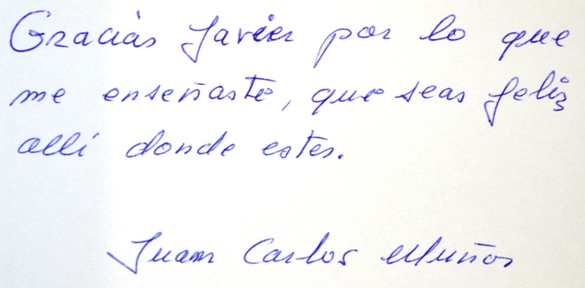 Gracias Javier por lo que
me enseñaste, que seas feliz
allí donde estes.
Juan Carlos Muñoz